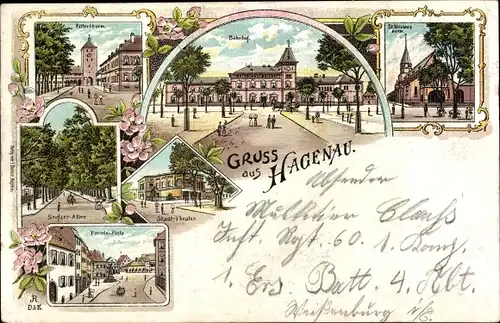 Ritterthurm.
Bahnhof.
St. Nicolaus
kirche
Großer-Allee
Stadt-Theater.
Parade-Platz.
GRUSS
aus HAGENAU.
JR
DAK
Absender
Musketier Claaß
Inft. Rgt. 60. 1. Komg.
1. Ers. Batt. 4. Abt.
Weißenburg i/E.